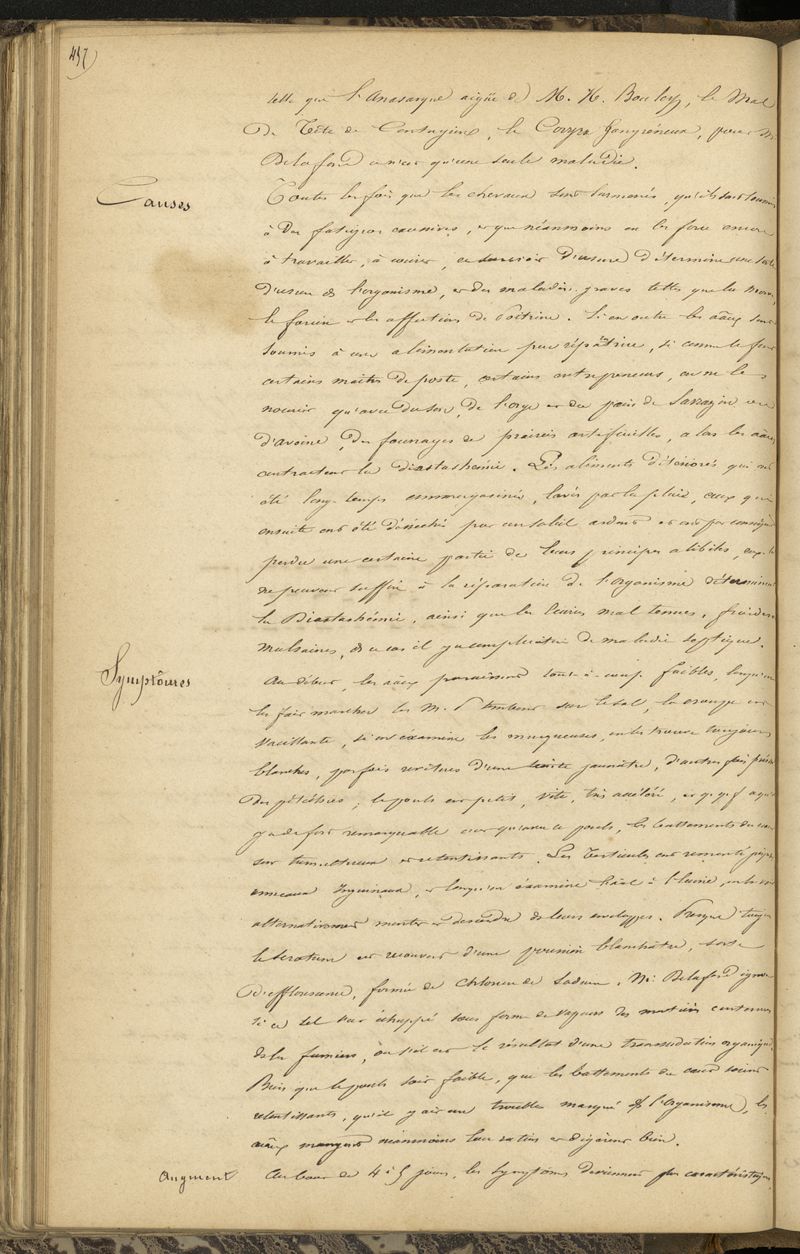 457)
telle que l'Anasarque aigüe de M. H. Bouley, le Mal
De Tête de Contagion, le Coryza gangréneux, pour M.
Delafond ce n'est qu'une seule maladie.
Causes
Toutes les fois que les chevaux sont surmenés, qu'ils sont soumis
à des fatigues excessives, et que néanmoins on les force encore
à travailler, à courir, ce surcroit d'usure détermine une sorte
D'usure de l'organisme, et des maladies graves telles que la morve,
le farcin et les affections de Poitrine. Si en outre les aâux sont
soumis à une alimentation peu réparatrice, si comme le font
certains maîtres de poste, certains entrepreneurs, on ne les
nourrit qu'avec du son, de l'orge et du pain de Sarrazin
d'avoine, des fourrages de prairies artificielles, alors les aâux
contractent la diastashémie. Les aliments détériorés qui ont
été long-temps emmagasinés, lavés par la pluie, ceux qui
ensuite ont été désséchés par un soleil ardent et ont par conséquent
perdu une certaine partie de leurs principes alibiles,
ne peuvent suffire à la réparation de l'organisme déterminent
la Diastashémie, ainsi que les écuries mal tenues, froides
Malsaines, de ce cas il y a complication de maladie septique.
Symptômes
Au début, les aâux paraissent tout-à-coup faibles, lorsqu'on
les fait marcher les M. P tombent sur le sol, la croupe est
vacillante, si on examine les muqueuses, on les trouve toujours
blanches, parfois revêtues d'une teinte jaunâtre, d'autres fois
Des pétéchies; le pouls est petit, vite, très accéléré, et ce qu'il
y a de fort remarquable c'est qu'avec ce pouls, les battements du cœur
sont tumultueux et retentissants. Les Testicules sont remontés
anneaux Inguinaux, et lorsqu'on examine l'aâl à l'écurie, on les voit
alternativement monter et descendre ds leurs enveloppes. Presque toujours
le scrotum est recouvert d'une poussière blanchâtre, sorte
D'efflorescence, formée de Chlorure de Sodium. Mr Delafond ignore
si ce sel s'est échappé sous forme de vapeurs des matières contenues
ds les fumiers, ou s'il est le résultat d'une transsudation organique.
Bien que le pouls soit faible, que les battements du cœur soient
retentissants, qu'il y ait un trouble marqué ds l'organisme, les
aâux mangent néanmoins leur ration et digèrent bien.
Augment
Au bout de 4 à 5 jours, les symptômes deviennent plus caractéristiques,